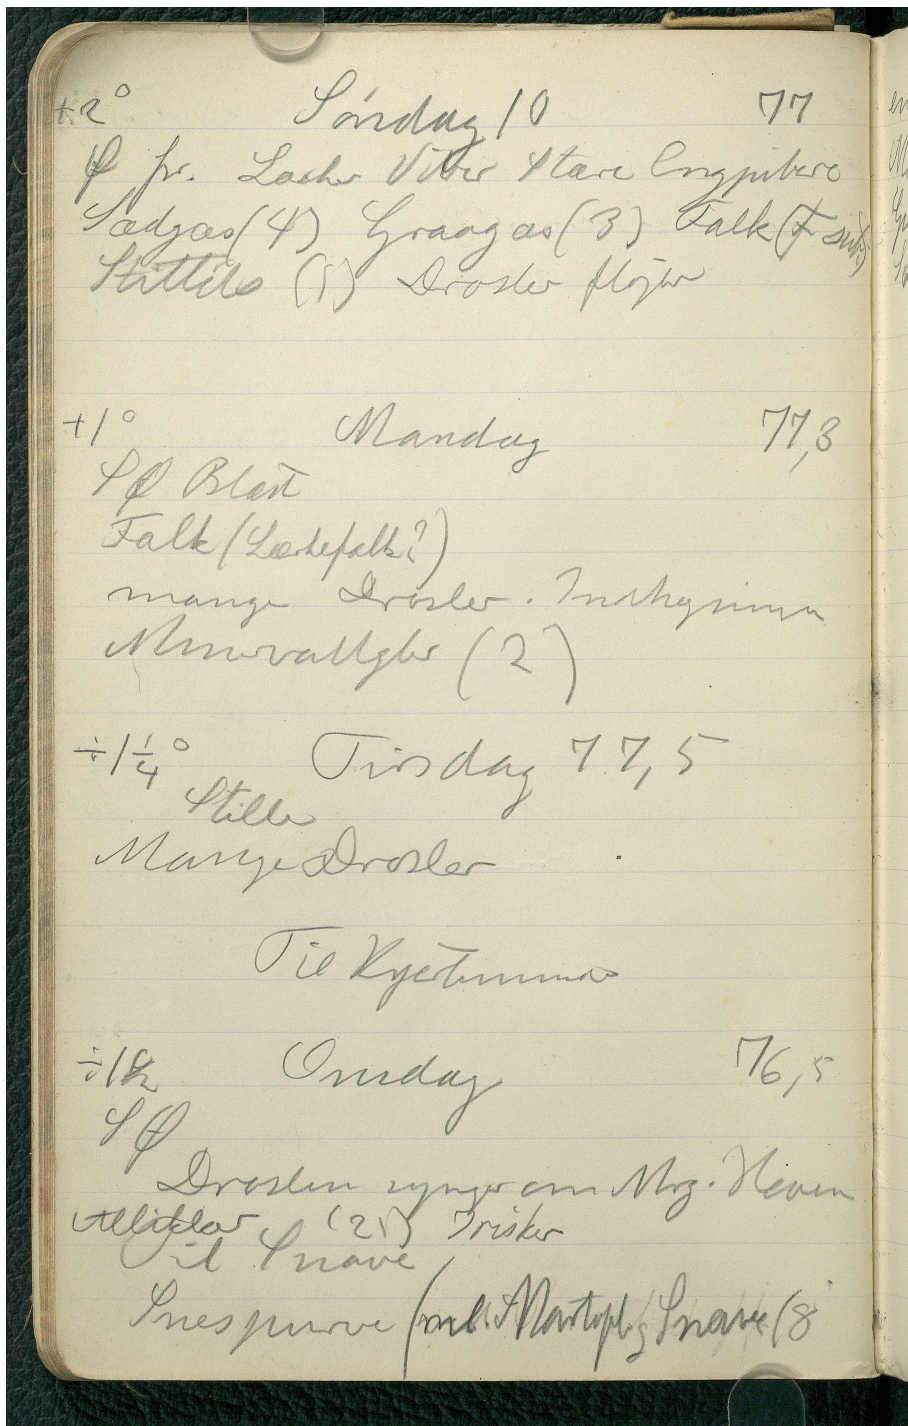 +2° Søndag 10 77
Ø fr. Lærker Viber Stære Engpibere
Sædgæs (4) Graagæs (3) Falk (F
Stillits (1) Drosler fløjter
+1° Mandag 77,3
SØ Blæst
Falk (Lærkefalk?)
mange Drosler.
Minervaugler (2)
÷1 1/4° Tirsdag 77,5
Stille
Mange Drosler
Til Kjerteminde
÷1 Onsdag 76,5
SØ
Droslen synger om Mrg. i Haven
(2) Irisker
Til Snave
Snespurve (ml. Martofte og Snave (8